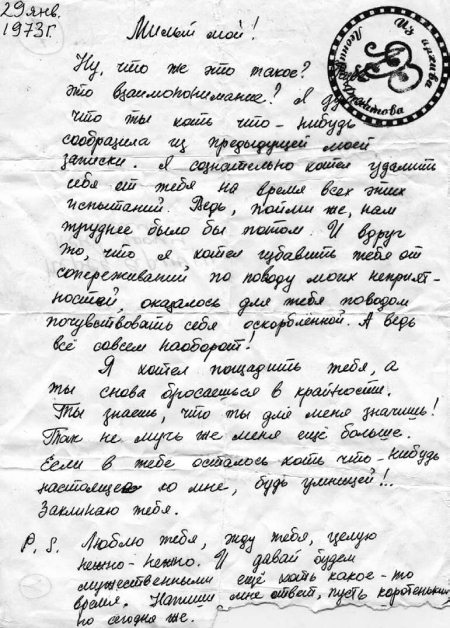 29 янв.
1973 г.
Милый мой!
Ну, что же это такое?
Это взаимопонимание? Я ду
что ты хоть что-нибудь
сообразила из предыдущей моей
записки. Я сознательно хотел удалить
себя от тебя на время всех этих
испытаний. Ведь, пойми же, нам
труднее было бы потом. И вдруг
то, что я хотел избавить тебя от
сопереживаний по поводу моих неприят-
ностей, оказалось для тебя поводом
почувствовать себя оскорблённой. А ведь
всё совсем наоборот!
Я хотел пощадить тебя, а
ты снова бросаешься в крайности.
Ты знаешь, что ты для меня значишь!
Так не мучь же меня ещё больше.
Если в тебе осталось хоть что-нибудь
настоящее ко мне, будь умницей!..
Заклинаю тебя.
P.S. Люблю тебя, жду тебя, целую
нежно-нежно. И давай будем
мужественными ещё хоть какое-то
время. Напиши мне ответ, пусть коротенький
но сегодня же.
Из архива